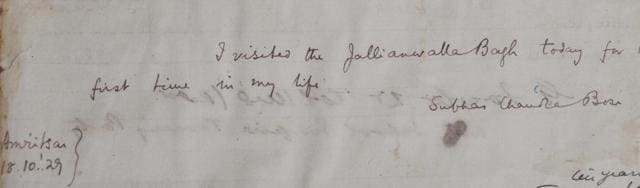 I visited the Jallianwalla Bagh today for
first time in my life.
Subhas Chandra Bose
Amritsar
18.10.29
ten years